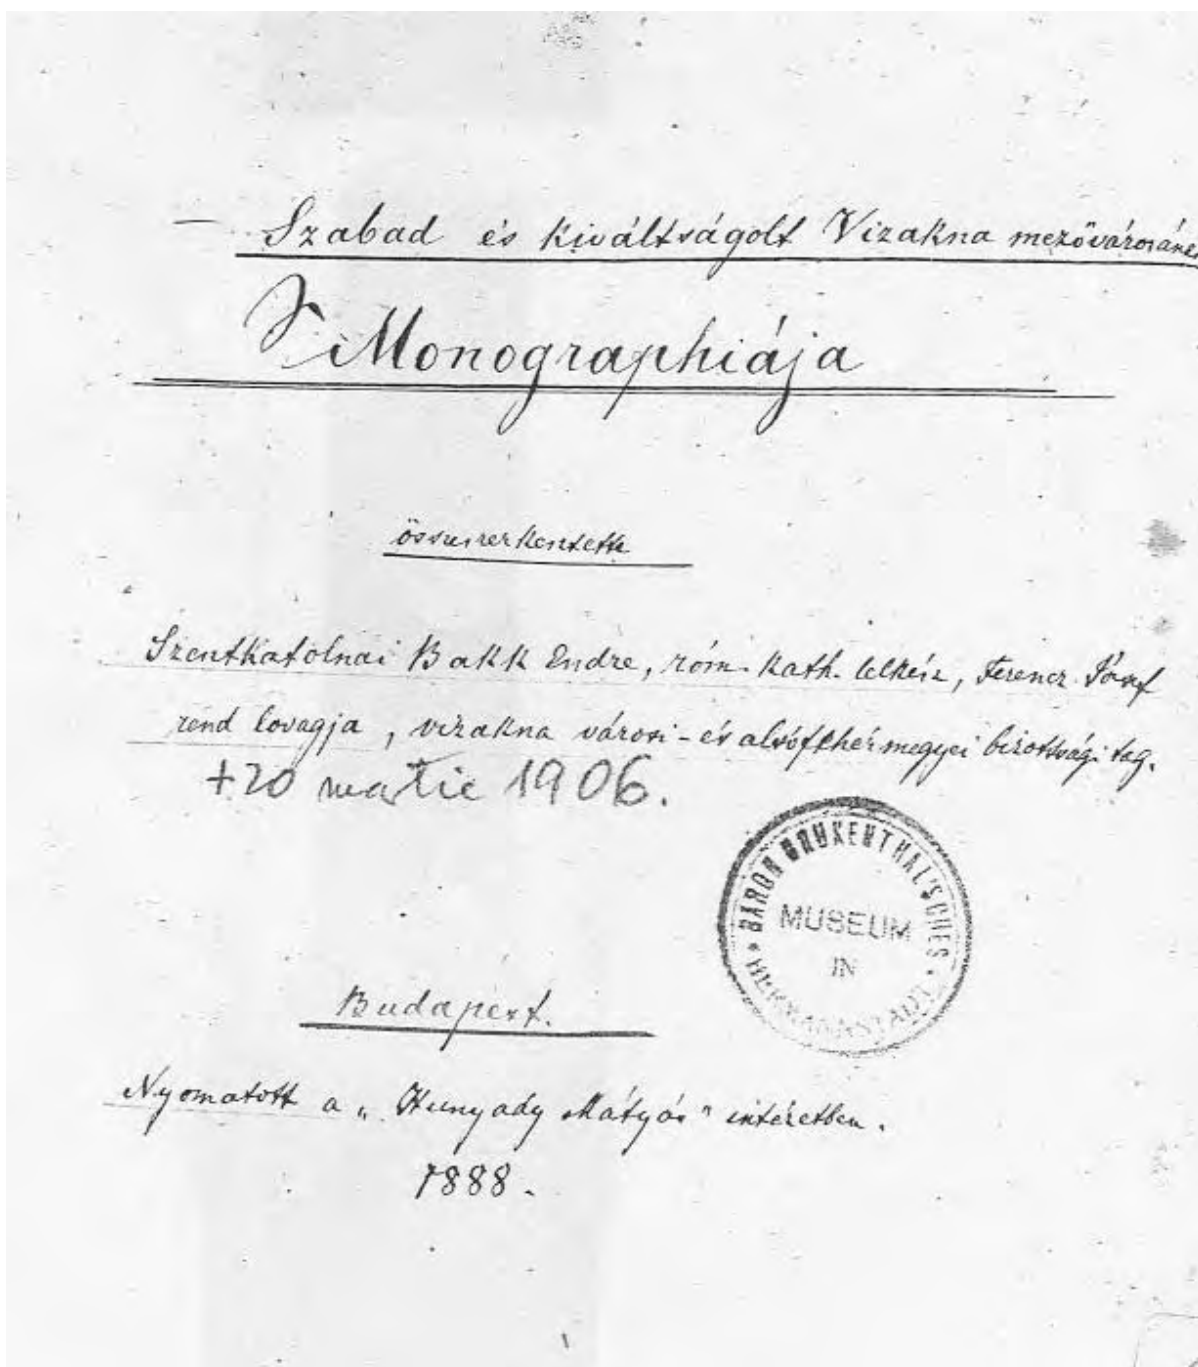 Szabad és kiváltságolt Vizakna mezővárosának
Monographiája
összeszerkesztette
Szentkatolnai Bakk Endre, róm. kath. lelkész, Ferencz József
rend lovagja, vizakna városi- és alsófehérmegyei bizottsági tag.
+20 martie 1906.
BARON BRUKENTHAL'SCHES
MUSEUM
IN
HERMANNSTADT
Budapest.
Nyomatott a „Hunyady Mátyás" intézetben.
1888.